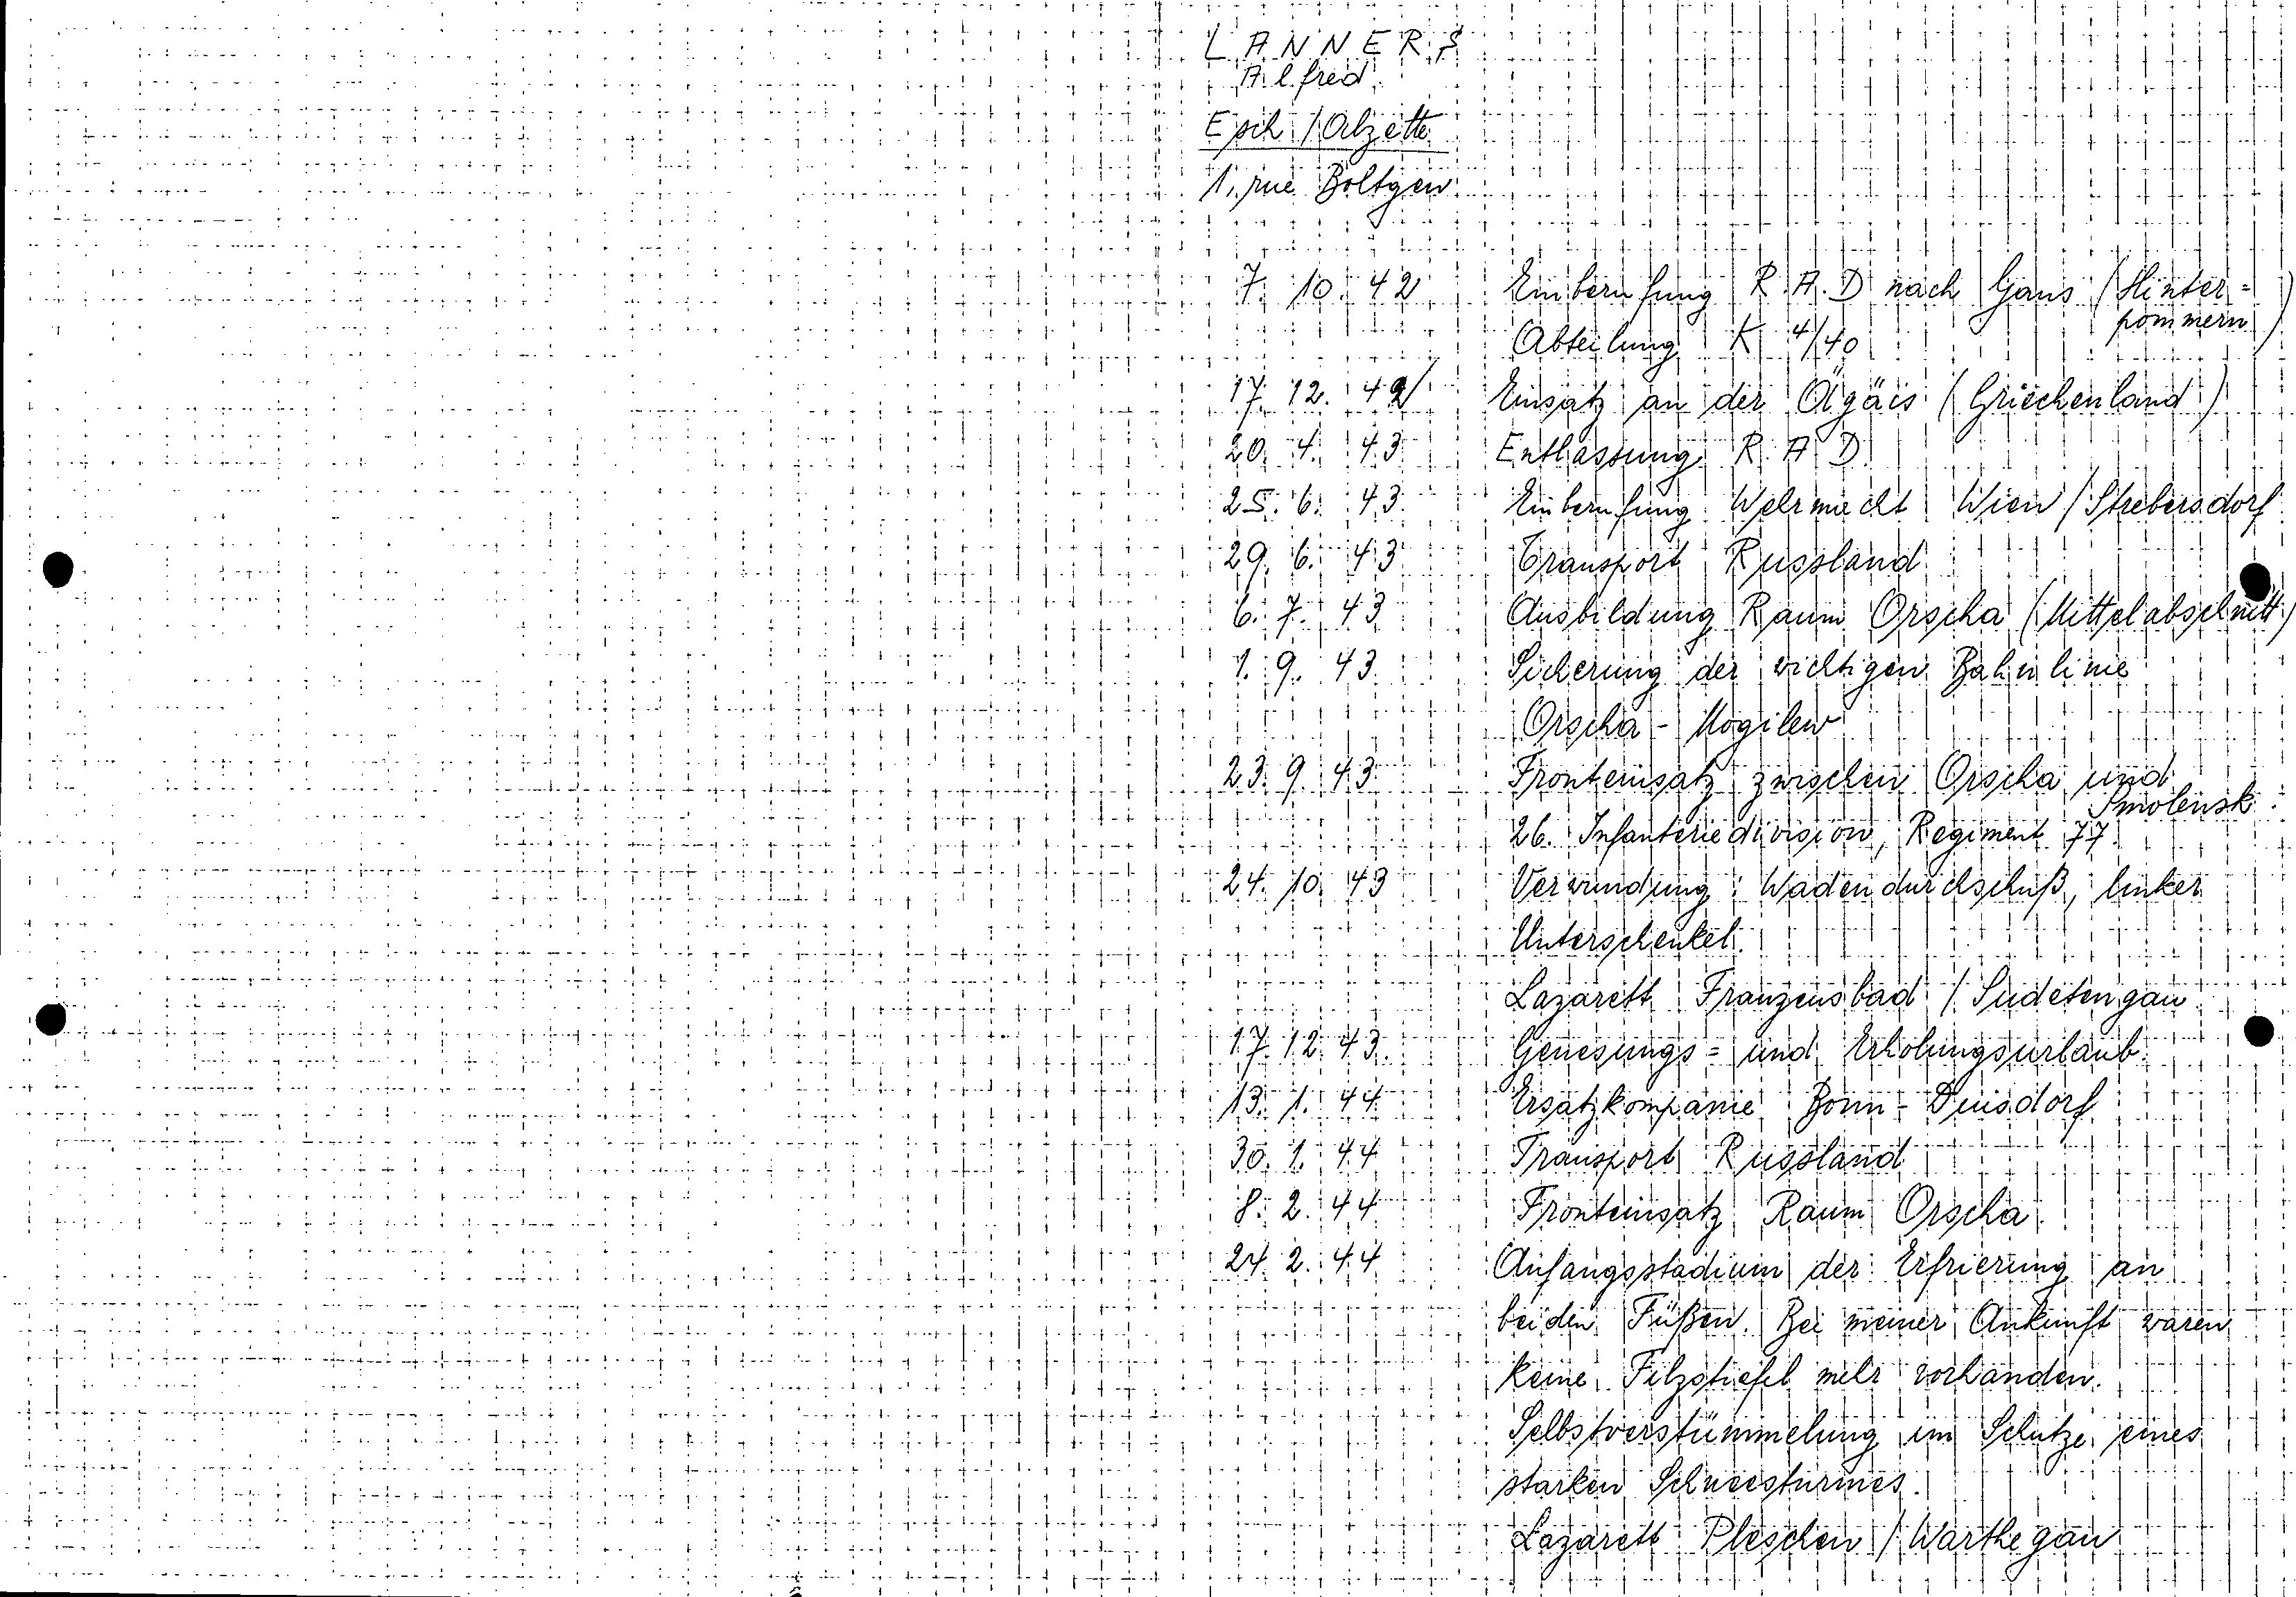 LANNERS
Alfred
Esch/Alzette
1, rue Boltgen
7. 10. 42 Einberufung R.A.D nach Gans (Hinter=
pommern)
Abteilung K 4/40
17. 12. 42 Einsatz an der Ägäis (Griechenland)
20. 4. 43 Entlassung R A D.
25. 6. 43 Einberufung Wehrmacht Wien/Strebersdorf
29. 6. 43 Transport Russland
6. 7. 43 Ausbildung Raum Orscha (Mittelabschnitt)
1. 9. 43 Sicherung der wichtigen Bahnlinie
Orscha - Mogilew
23. 9. 43 Fronteinsatz zwischen Orscha und
Smolensk.
26. Infanteriedivision, Regiment 77.
24. 10. 43 Verwundung: Wadendurchschuß, linker
Unterschenkel.
Lazarett Franzensbad / Sudetengau
17. 12. 43. Genesungs= und Erholungsurlaub.
13. 1. 44 Ersatzkompanie Bonn - Duisdorf
30. 1. 44 Transport Russland
8. 2. 44 Fronteinsatz Raum Orscha.
24. 2. 44 Anfangsstadium der Erfrierung an
beiden Füßen. Bei meiner Ankunft waren
keine Filzstiefel mehr vorhanden.
Selbstverstümmelung im Schutze eines
starken Schneesturmes.
Lazarett Pleschen / Warthegau